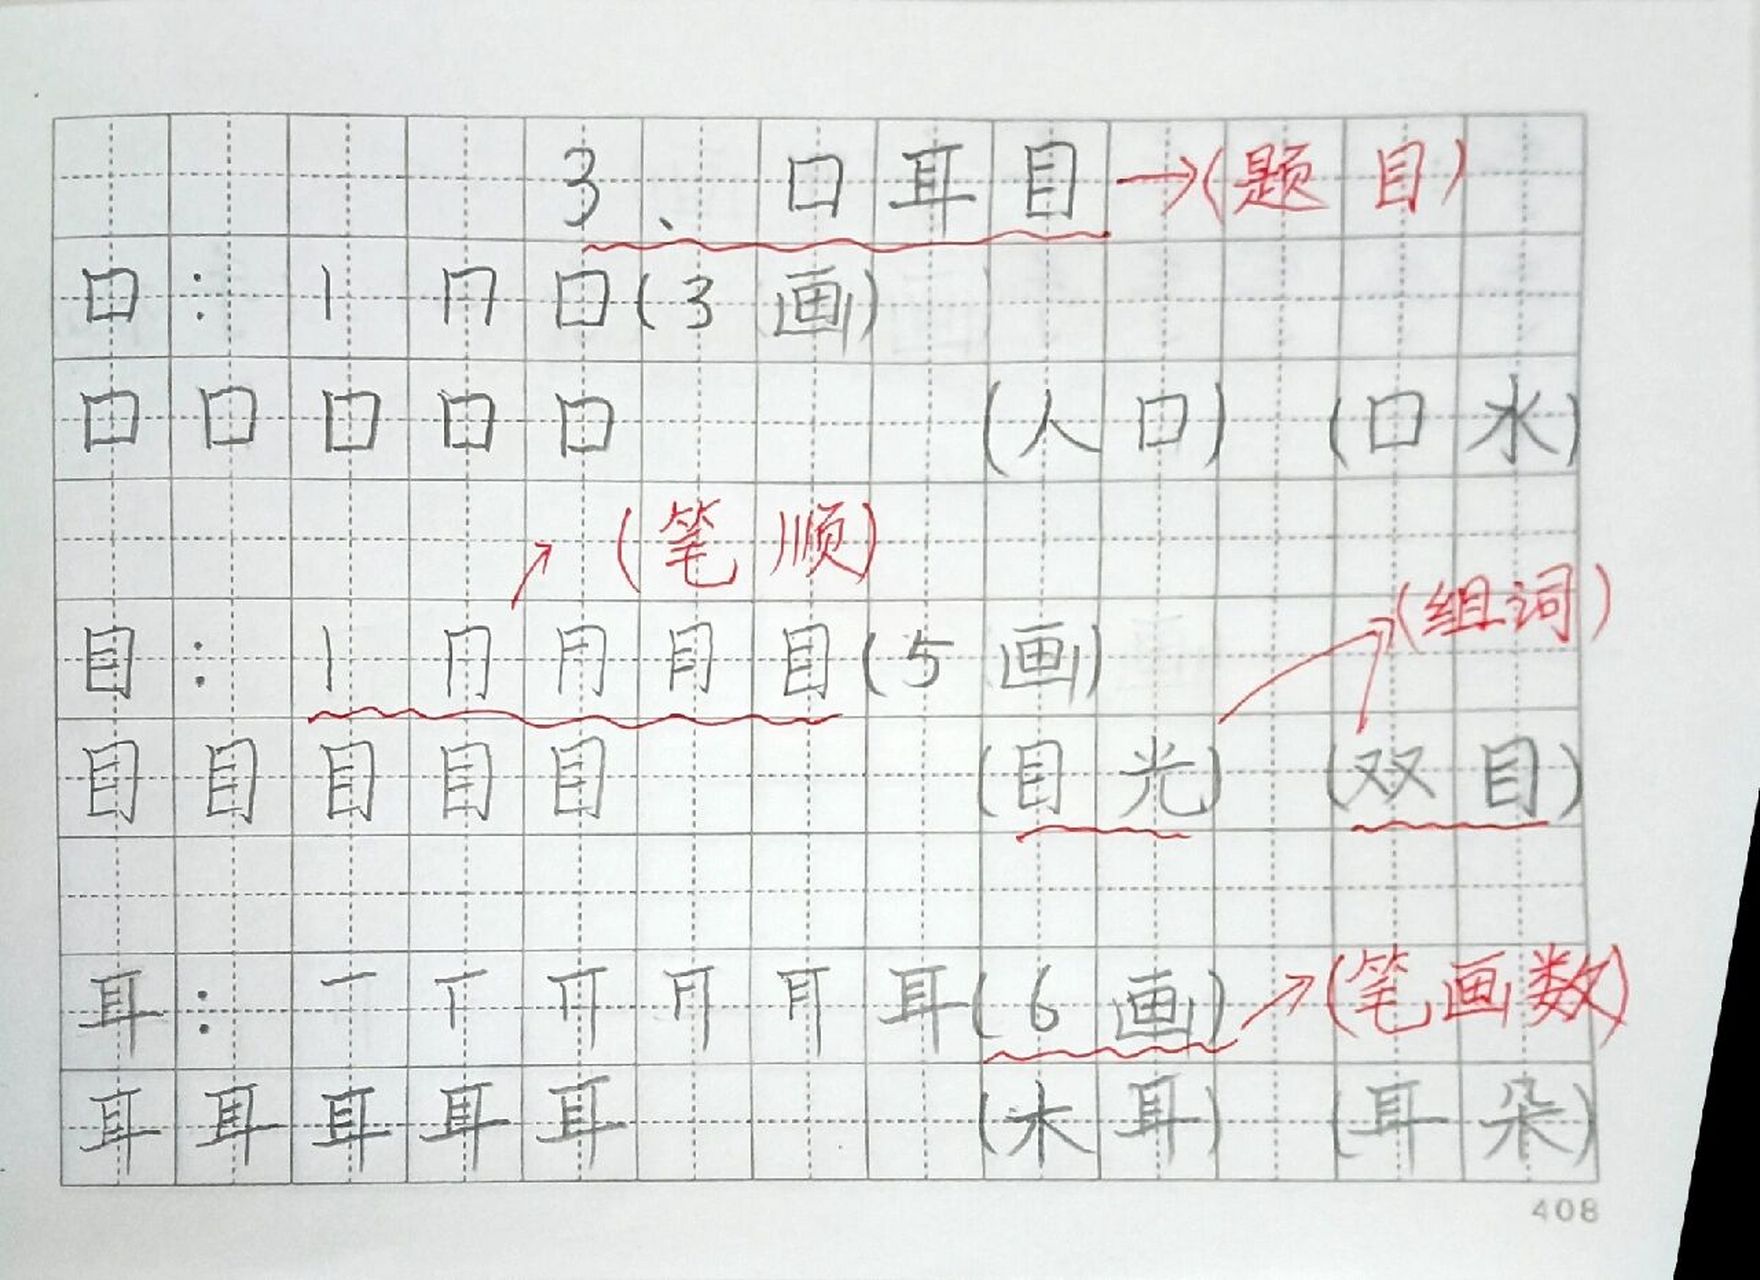 3、口耳目→(题目)
口:丨冂口(3画)
口口口口口 (人口) (口水)
(笔顺)
(组词)
目:丨冂月月目(5画)
目目目目目 (目光) (双目)
耳:一丅丌耳(6画)→(笔画数)
耳耳耳耳耳 (木耳) (耳朵)
408